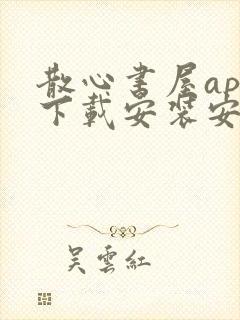 散心書屋ap
下載安裝安
吴雲紅